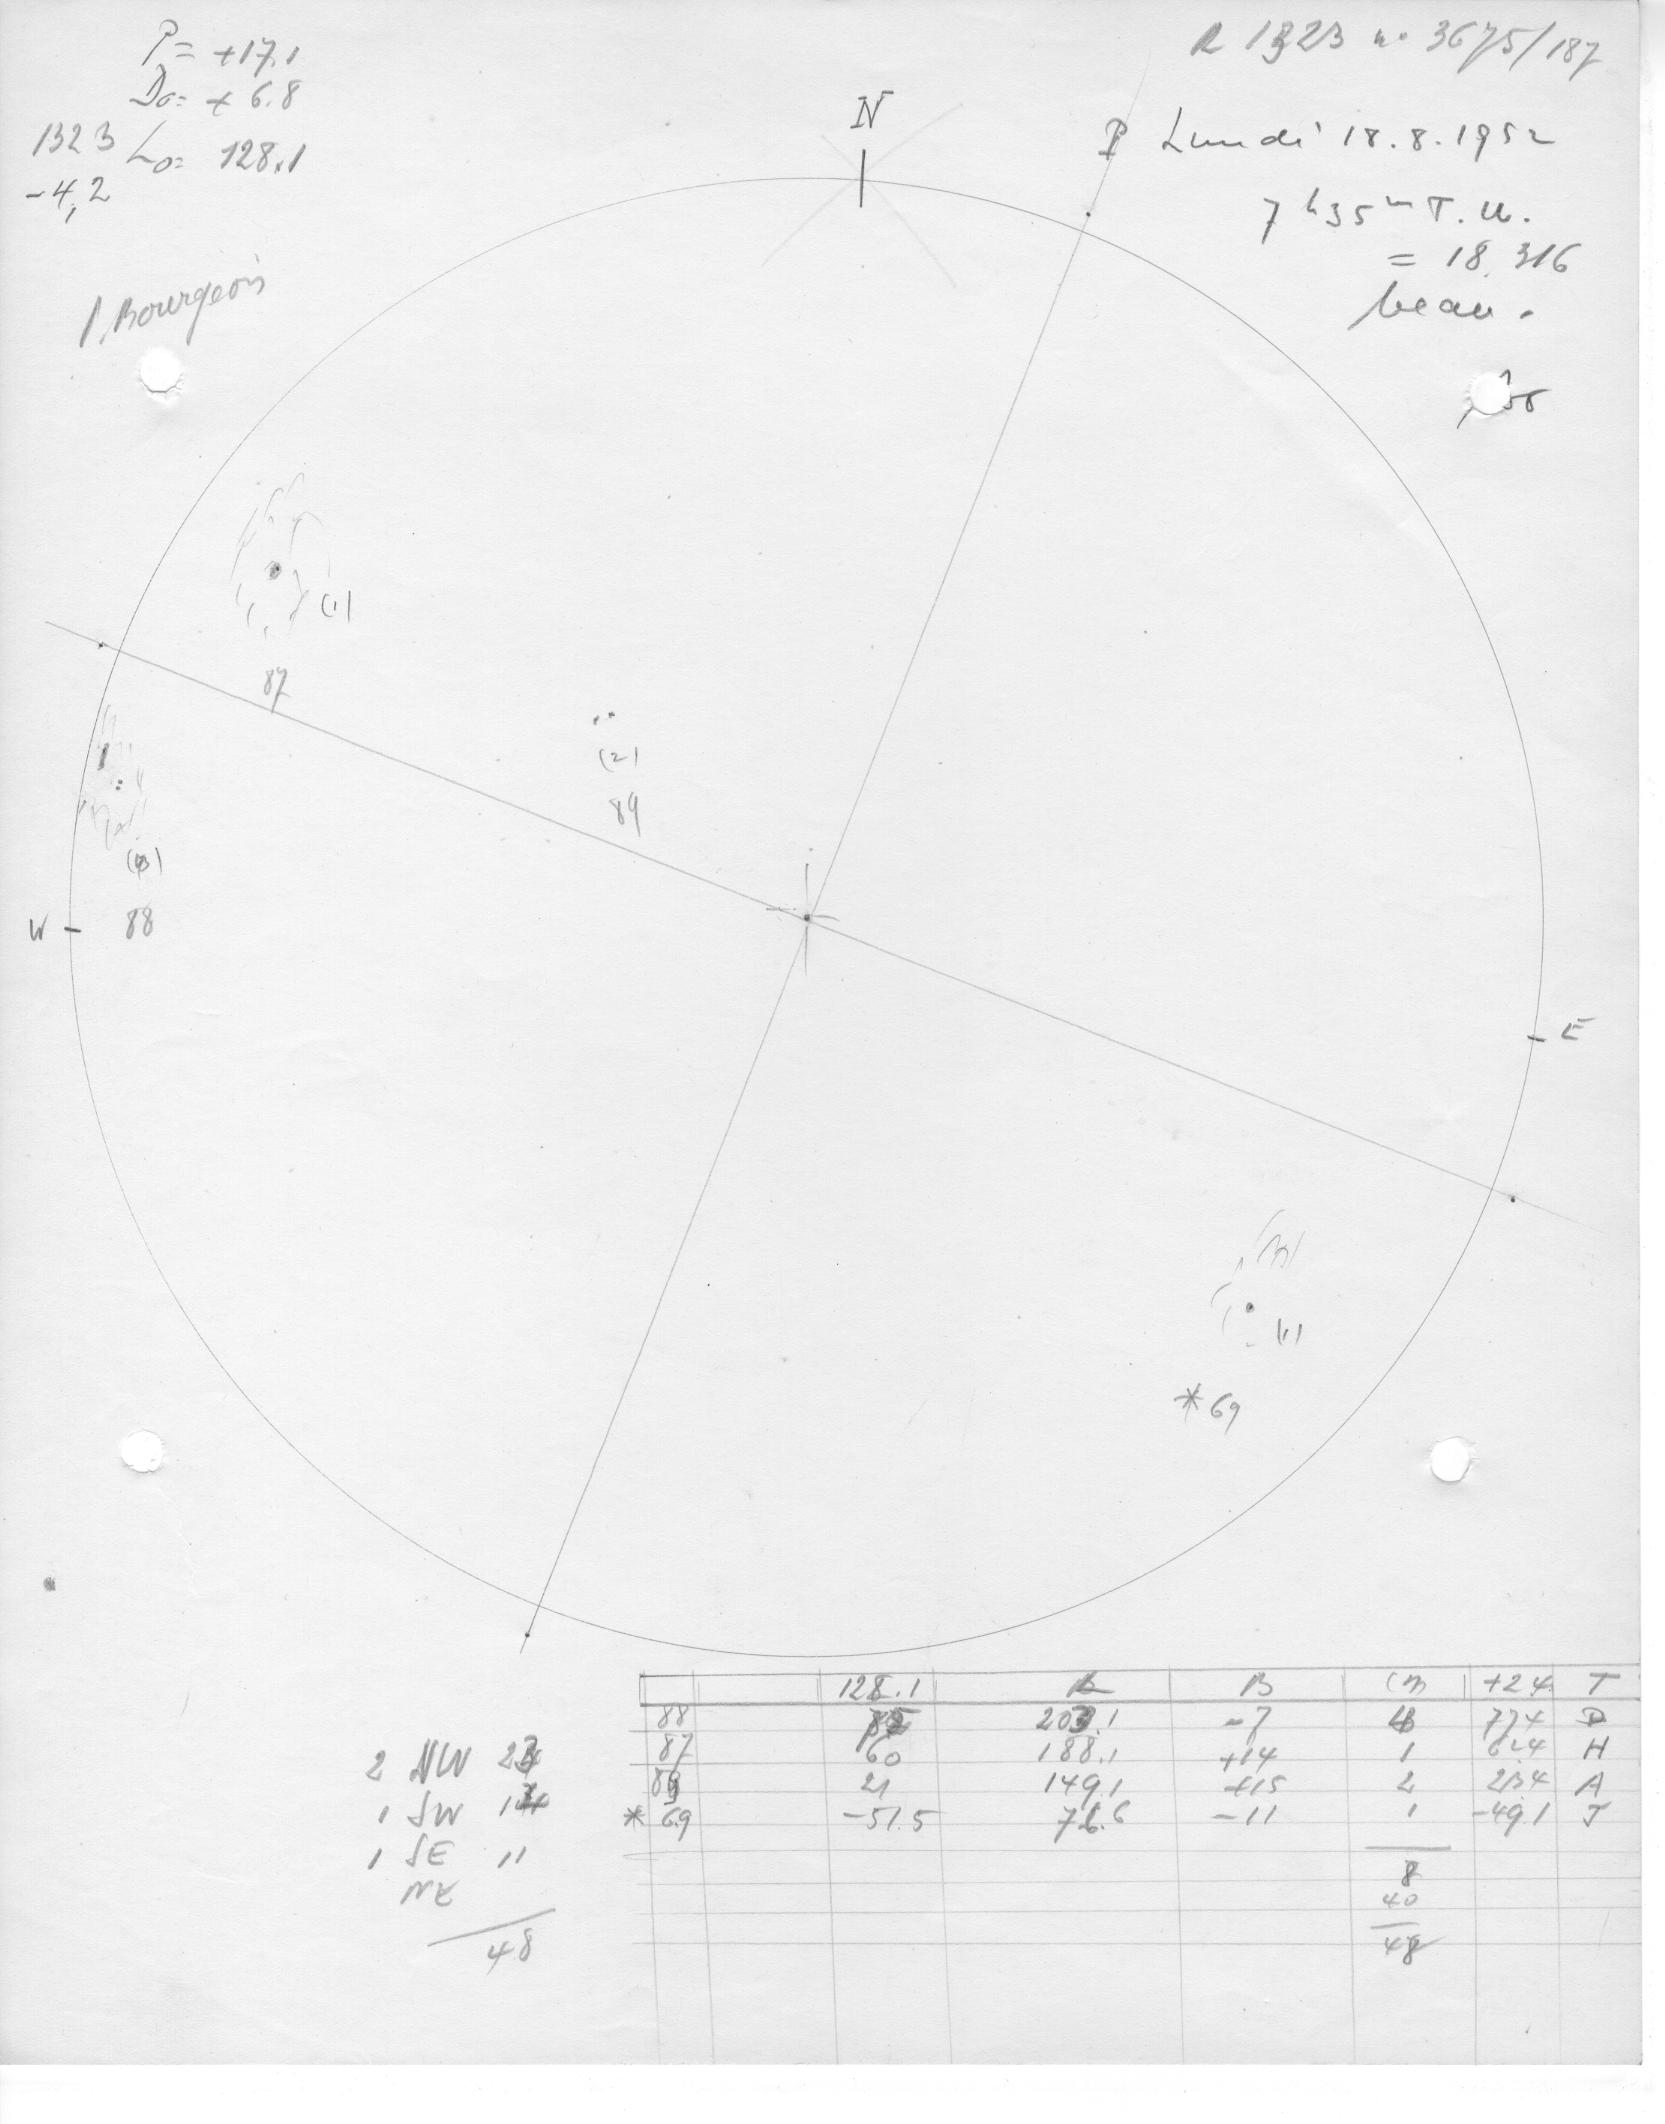 P = +17.1
Do = + 6.8
1323 Lo = 128.1
-4,2
R 1323 no 3675/187
N
P Lundi 18.8.1952
7h35m T.U.
= 18.316
beau.
Bourgeois
(1)
87
(2)
89
88
W
E
(1)
* 69
128.1 B (3) +2.4 T
88 203.1 -7 77.4 D
87 60 188.1 +14 1 62.4 H
89 21 149.1 +15 2 23.4 A
* 69 -51.5 76.6 -11 1 -49.1 J
8
40
48
2 NW
1 SW
1 SE 11
NE
48